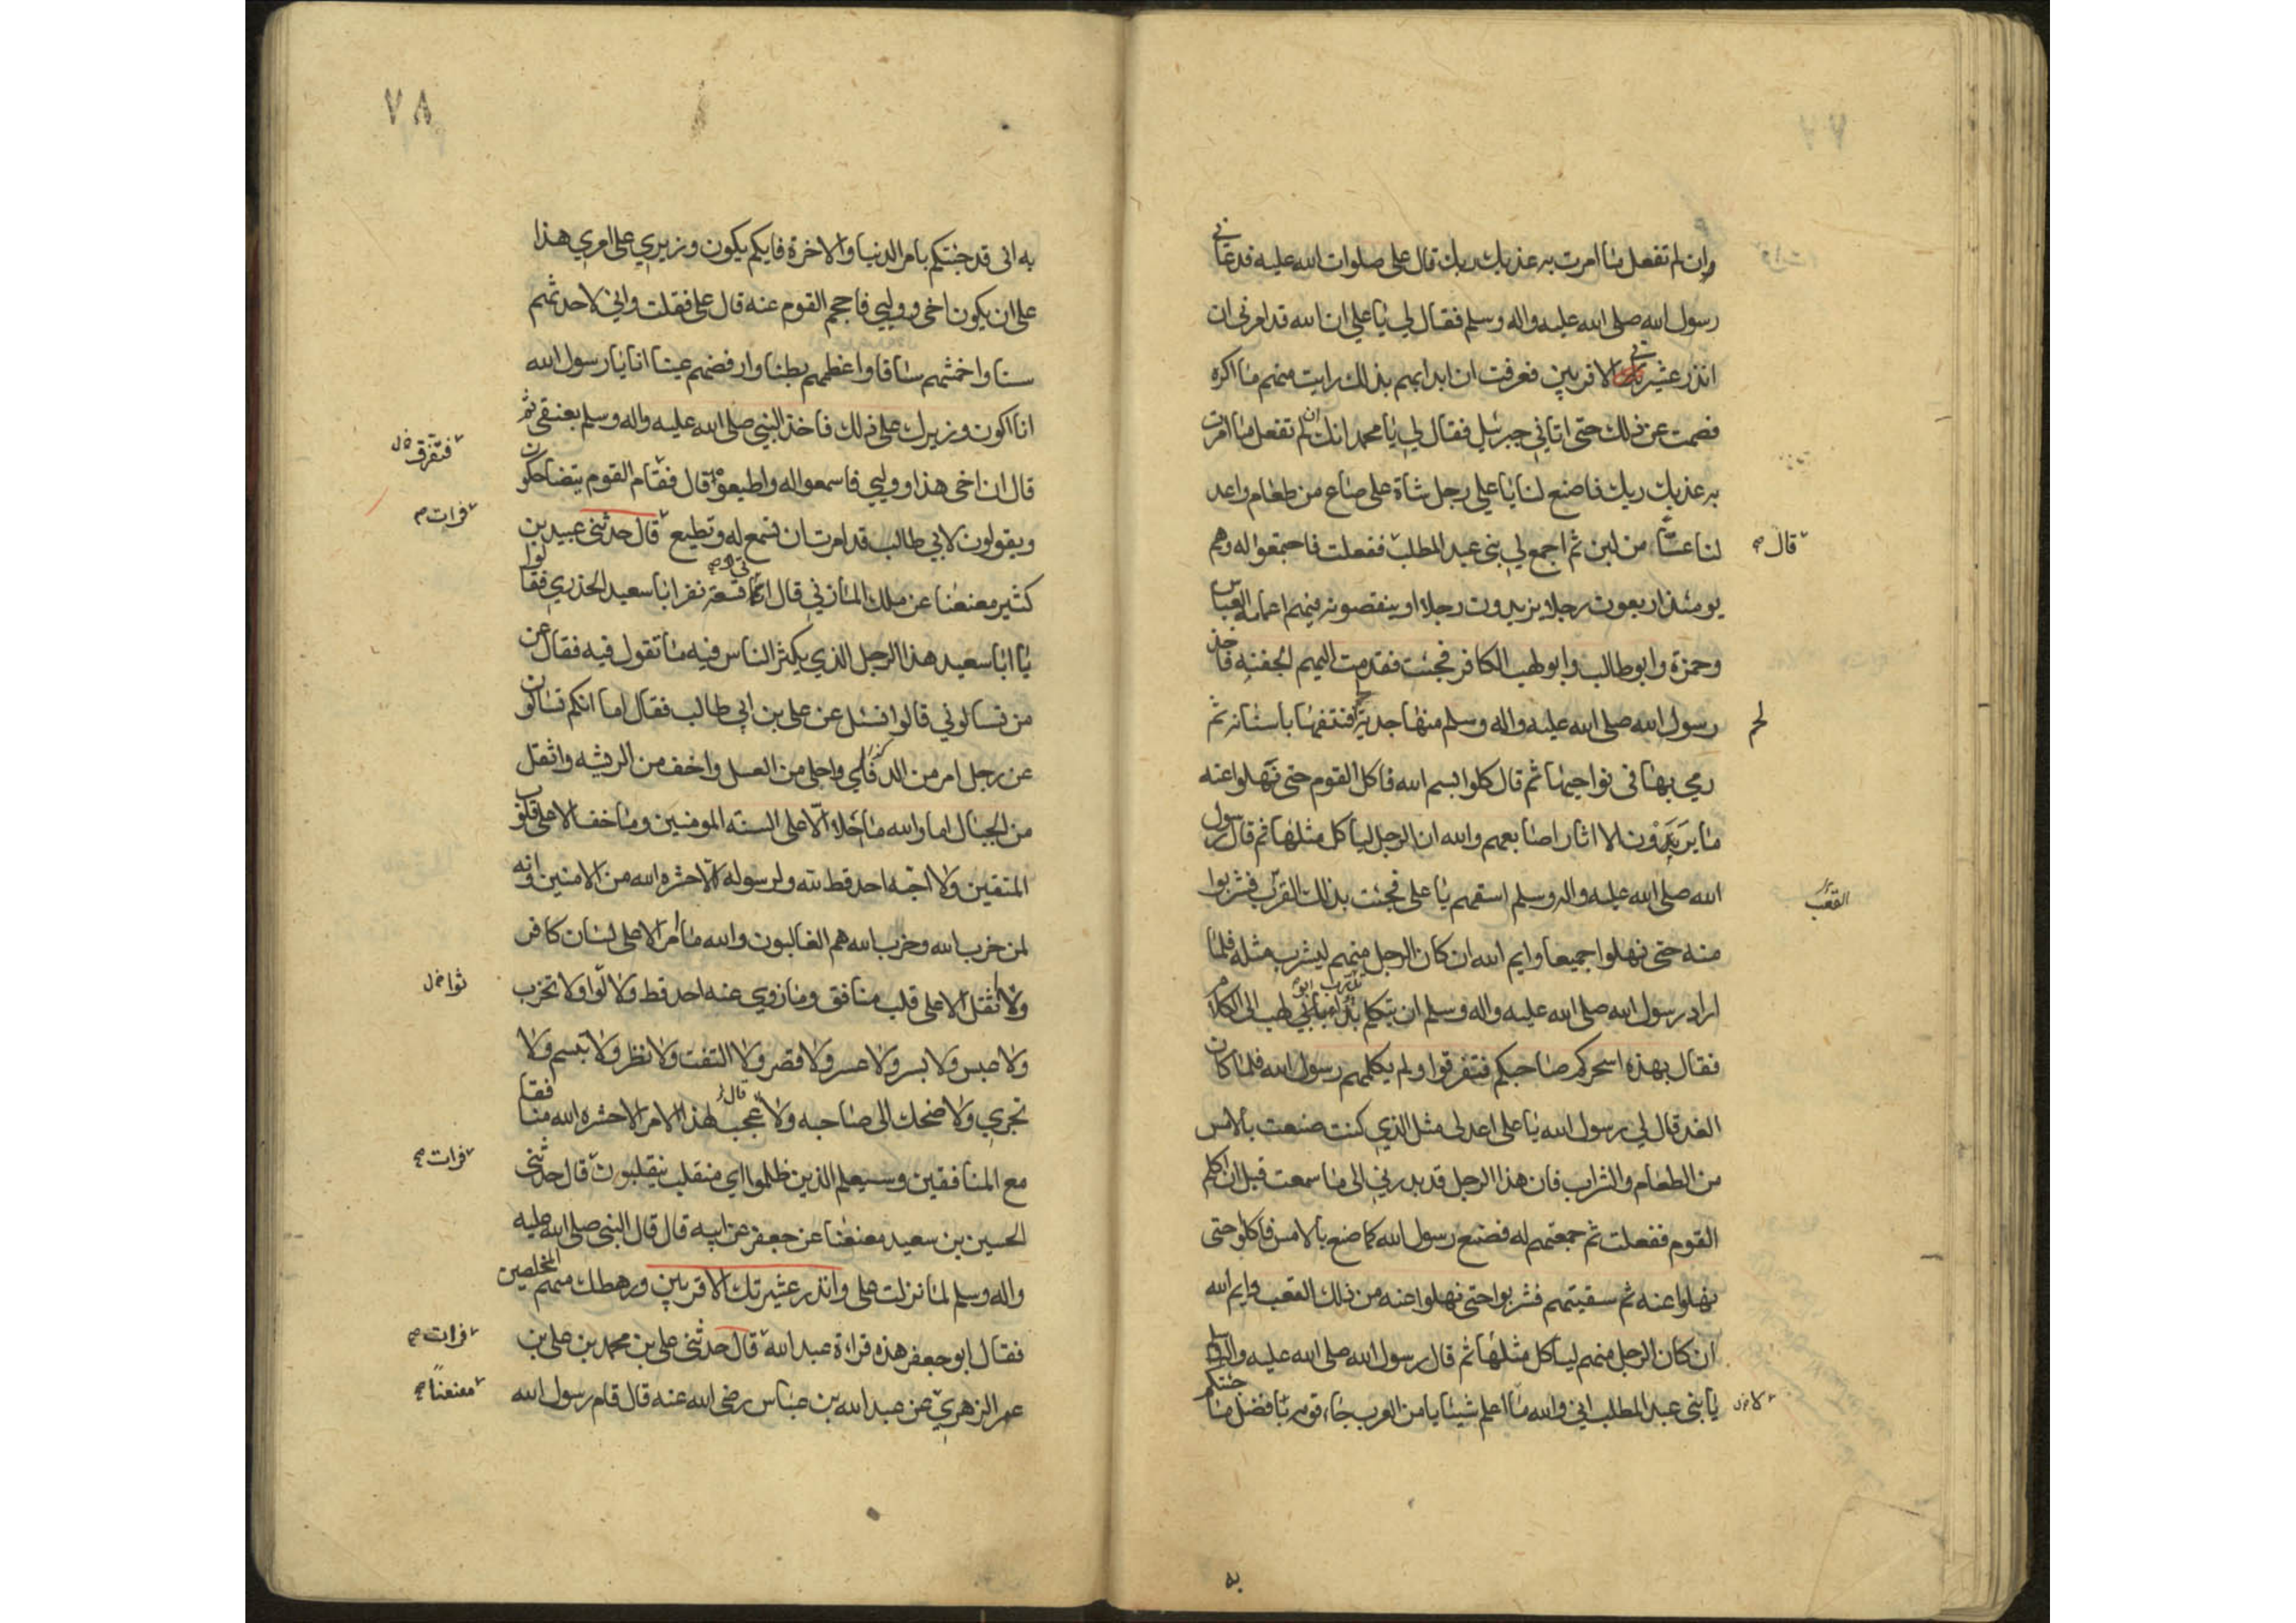 وان لم تفعل ما امرت به عذبك ربك قال علي صلوات الله عليه فدعاني
رسول الله صلى الله عليه واله وسلم فقال لي يا علي ان الله قد امرني ان
انذر عشيرتي الاقربين فعرفت ان ابدابهم بذلك رايت منهم ما اكره
فصمت عن ذلك حتى اتاني جبرئيل فقال لي يا محمد انك ان لم تفعل ما امرت
به عذبك ربك فاصنع لنا يا علي رجل شاة على صاع من طعام واعد
لنا عسا من لبن ثم اجمع لي بني عبد المطلب ففعلت فاجتمعوا له وهم
قال صح
يومئذ اربعون رجلا يزيدون رجلا او ينقصونه فيهم اعمامه العباس
وحمزة وابو طالب وابو لهب الكافر فجئت فقدمت اليهم الجفنه فاخذ
رسول الله صلى الله عليه واله وسلم منها جدية فنتفها باسنانه ثم
لحم
رمي بها في نواحيها ثم قال كلوا بسم الله فاكل القوم حتى نهلوا عنه
ما يريدون الا اثار اصابعهم والله ان الرجل لياكل مثلها ثم قال رسول
الله صلى الله عليه واله وسلم اسقهم يا علي فجئت بذلك القرب فشربوا
القعب
منه حتى نهلوا جميعا وايم الله ان كان الرجل منهم ليشرب مثله فلما
اراد رسول الله صلى الله عليه واله وسلم ان يتكلم لهب الى الكلام
فقال بهذه اسحركم صاحبكم فتفرقوا ولم يكلمهم رسول الله فلما كان
الغد قال لي رسول الله يا علي اعد لي مثل الذي كنت صنعت بالامس
من الطعام والشراب فان هذا الرجل قد بدرني الى ما سمعت قبل ان اكلم
القوم ففعلت ثم جمعتهم له فصنع رسول الله كما صنع بالامس فاكلوا حتى
نهلوا عنه ثم سقيتهم فشربوا حتى نهلوا عنه من ذلك القعب وايم الله
ان كان الرجل منهم لياكل مثلها ثم قال رسول الله صلى الله عليه واله
يا بني عبد المطلب اني والله ما اعلم شيئا يا من العرب جاء قومه بافضل ما جئتكم
به
٧٨
به اني قد جئتكم بامر الدنيا والاخرة فايكم يكون وزيري على امري هذا
على ان يكون اخي وولي فاحجم القوم عنه قال علي فقلت واني لاحدثهم
سنا واخمشهم ساقا واعظمهم بطنا وارفضهم عينا انا يا رسول الله
انا اكون وزيرك على ذلك فاخذ النبي صلى الله عليه واله وسلم بعنقي ثم
قال ان اخي هذا وولي فاسمعوا له واطيعوا قال فقام القوم يتضاحكون
فتفرق
ويقولون لابي طالب قد امرت ان تسمع له وتطيع قال حدثني عبيد بن
فرات صح
كثير معنعنا عن ملك المازني قال اتى تسعة نفر ابا سعيد الخدري فقالوا
يا ابا سعيد هذا الرجل الذي يكثر الناس فيه ما تقول فيه فقال عن
من تسالوني قالوا نسئل عن علي بن ابي طالب فقال اما انكم تسالون
عن رجل امر من الدفلى واحلى من العسل واخف من الريشه واثقل
من الجبال اما والله ما حلا الا على السنة المومنين وما خف الا على قلوب
المتقين ولا احبه احد قط لله ولرسوله الا حشره الله من الامنين وانه
لمن حزب الله وحزب الله هم الغالبون والله ما امر الا على لسان كافر
ولا ثقل الا على قلب منافق وما زوي عنه احد قط ولا لوا ولا تحزب
ولا عبس ولا بسر ولا عسر ولا قصر ولا التفت ولا نظر ولا تبسم ولا
تجري ولا ضحك الى صاحبه ولا عجب لهذا الامر الا حشره الله منافقا
مع المنافقين وسيعلم الذين ظلموا اي منقلب ينقلبون قال حدثني
فرات صح
الحسين بن سعيد معنعنا عن جعفر عن ابيه قال قال النبي صلى الله عليه
واله وسلم لما نزلت علي وانذر عشيرتك الاقربين ورهطك منهم المخلصين
فقال ابو جعفر هذه قراءة عبد الله قال حدثني علي بن محمد بن علي بن
فرات صح
عمر الزهري عن عبد الله بن عباس رضي الله عنه قال قام رسول الله
معنعنا صح